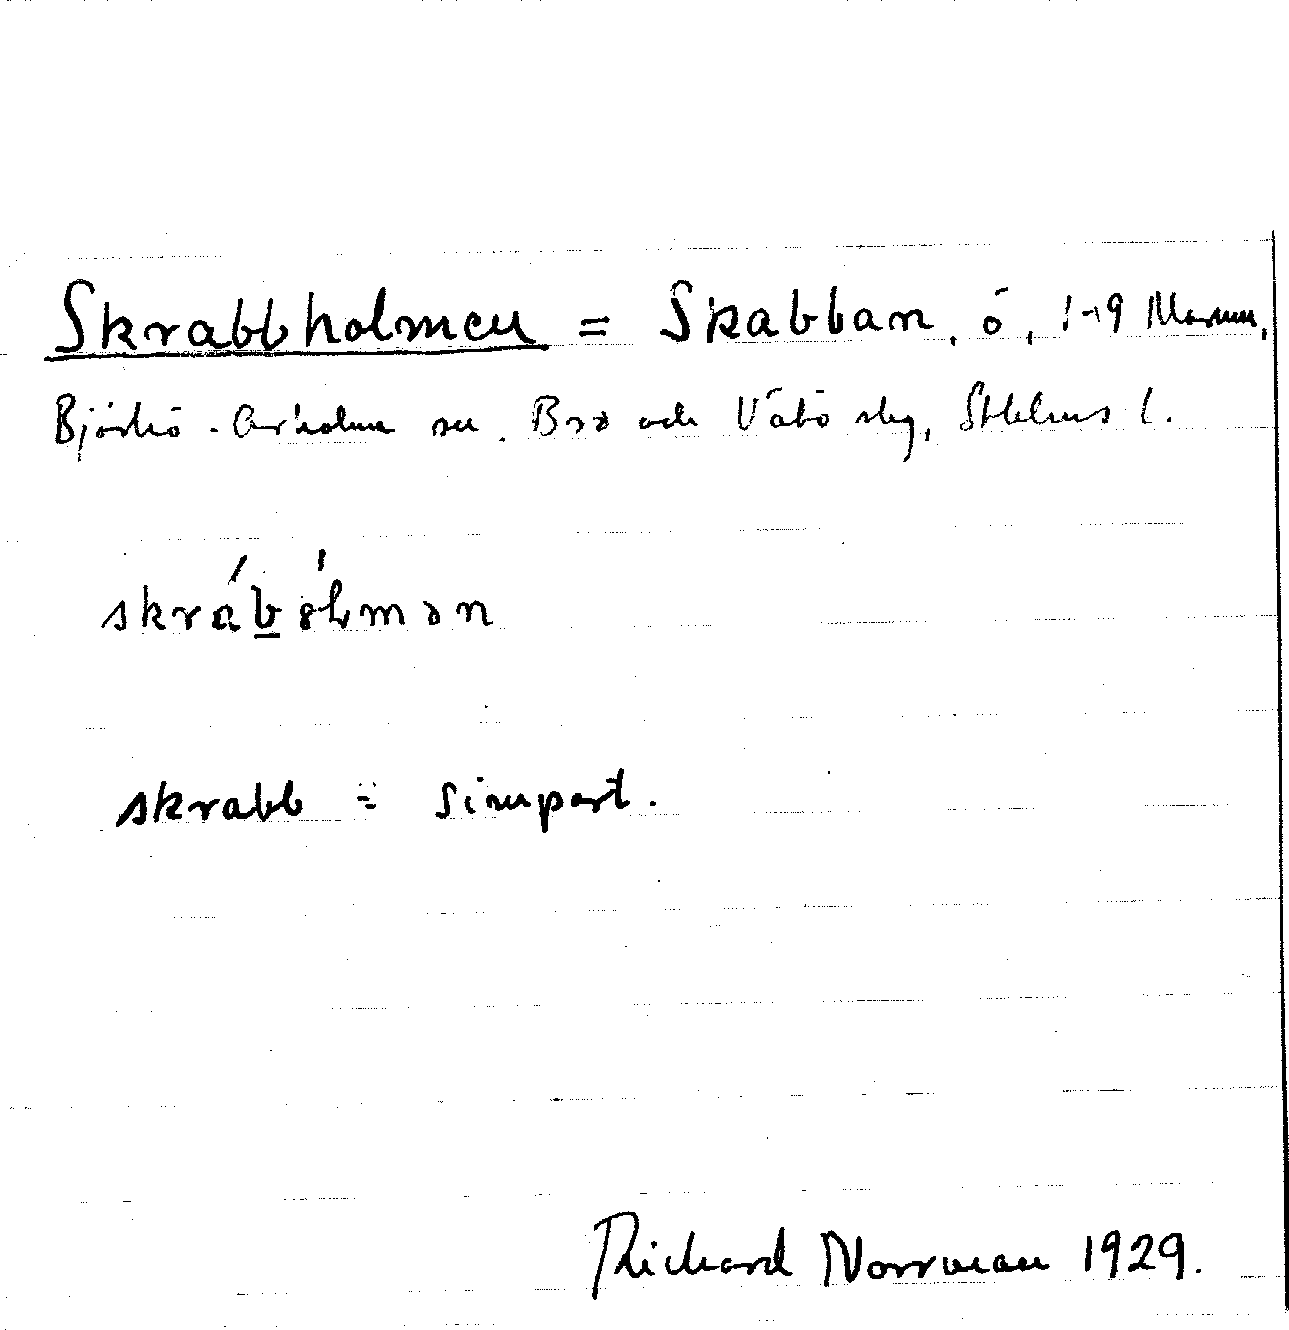 Skrabbholmen = Skabban, ö, 1-9 Marum,
Björkö-Arholma sn. Bro och Vätö skg, Sthlms l.
skrábólmən
skrabb = simpart.
Richard Norrman 1929.